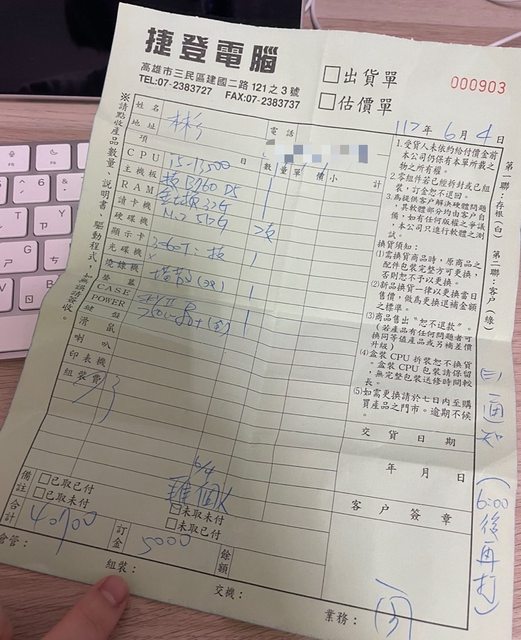 捷登電腦
高雄市三民區建國二路121之3號
TEL:07-2383727 FAX:07-2383737
□出貨單
□估價單
000903
年 6 月 4 日
第一聯:存根(白) 第二聯:客戶(綠)
※請點收產品數量、說明書、驅動程式,如無誤簽收。
姓名 林 電話
地址
項 目 數量 單價 小計
CPU i5-13500 1
主機板 技 B760 D5 1
RAM 32G
讀卡機
硬碟機 M.2 512G
顯示卡 3060Ti 技
光碟機
燒錄機
螢幕
CASE
POWER
鍵盤
滑鼠
喇叭
印表機
組裝費
1.受貨人未依約給付價金前本公司仍保有本單所載之物之所有權。
2.零組件若已經折封或已組裝,訂金恕不退回。
3.為提供客戶解決軟體問題,其軟體部分均由客戶自備,如有任何版權之爭議,本公司只進行軟體之測試。
換貨須知:
(1)需換貨商品時,原商品之配件包裝完整方可更換,否則恕不予以更換。
(2)新品換貨一律以更換當日售價,做為更換退補金額之標準。
(3)商品售出〝恕不退款〞。(若產品有任何問題者可換同等值產品或另補差價升級)
(4)盒裝CPU拆裝恕不換貨,盒裝CPU包裝請保留,無完整包裝送修時間較長。
(5)如需更換請於七日內至購買產品之門市。逾期不候。
交貨日期
年 月 日
客戶簽章
已通知 (6:00後再打)
備註
□已取已付
□已取未付
6/4
□未取未付
□未取已付
合計 40900
訂金 5000
餘額
倉管:
組裝:
交機:
業務: